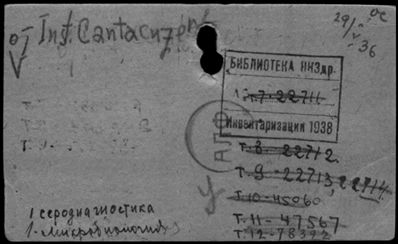 Inst. Cantacuzène
29/V-36
БИБЛИОТЕКА НКЗдр.
т. 7-22711
Инвентаризация 1938
АПО
т. 8 - 22712
т. 9 - 22713, 22714
т. 10-45060
т. 11-47567
т. 12-78392
1 серодиагностика
1. микробиология